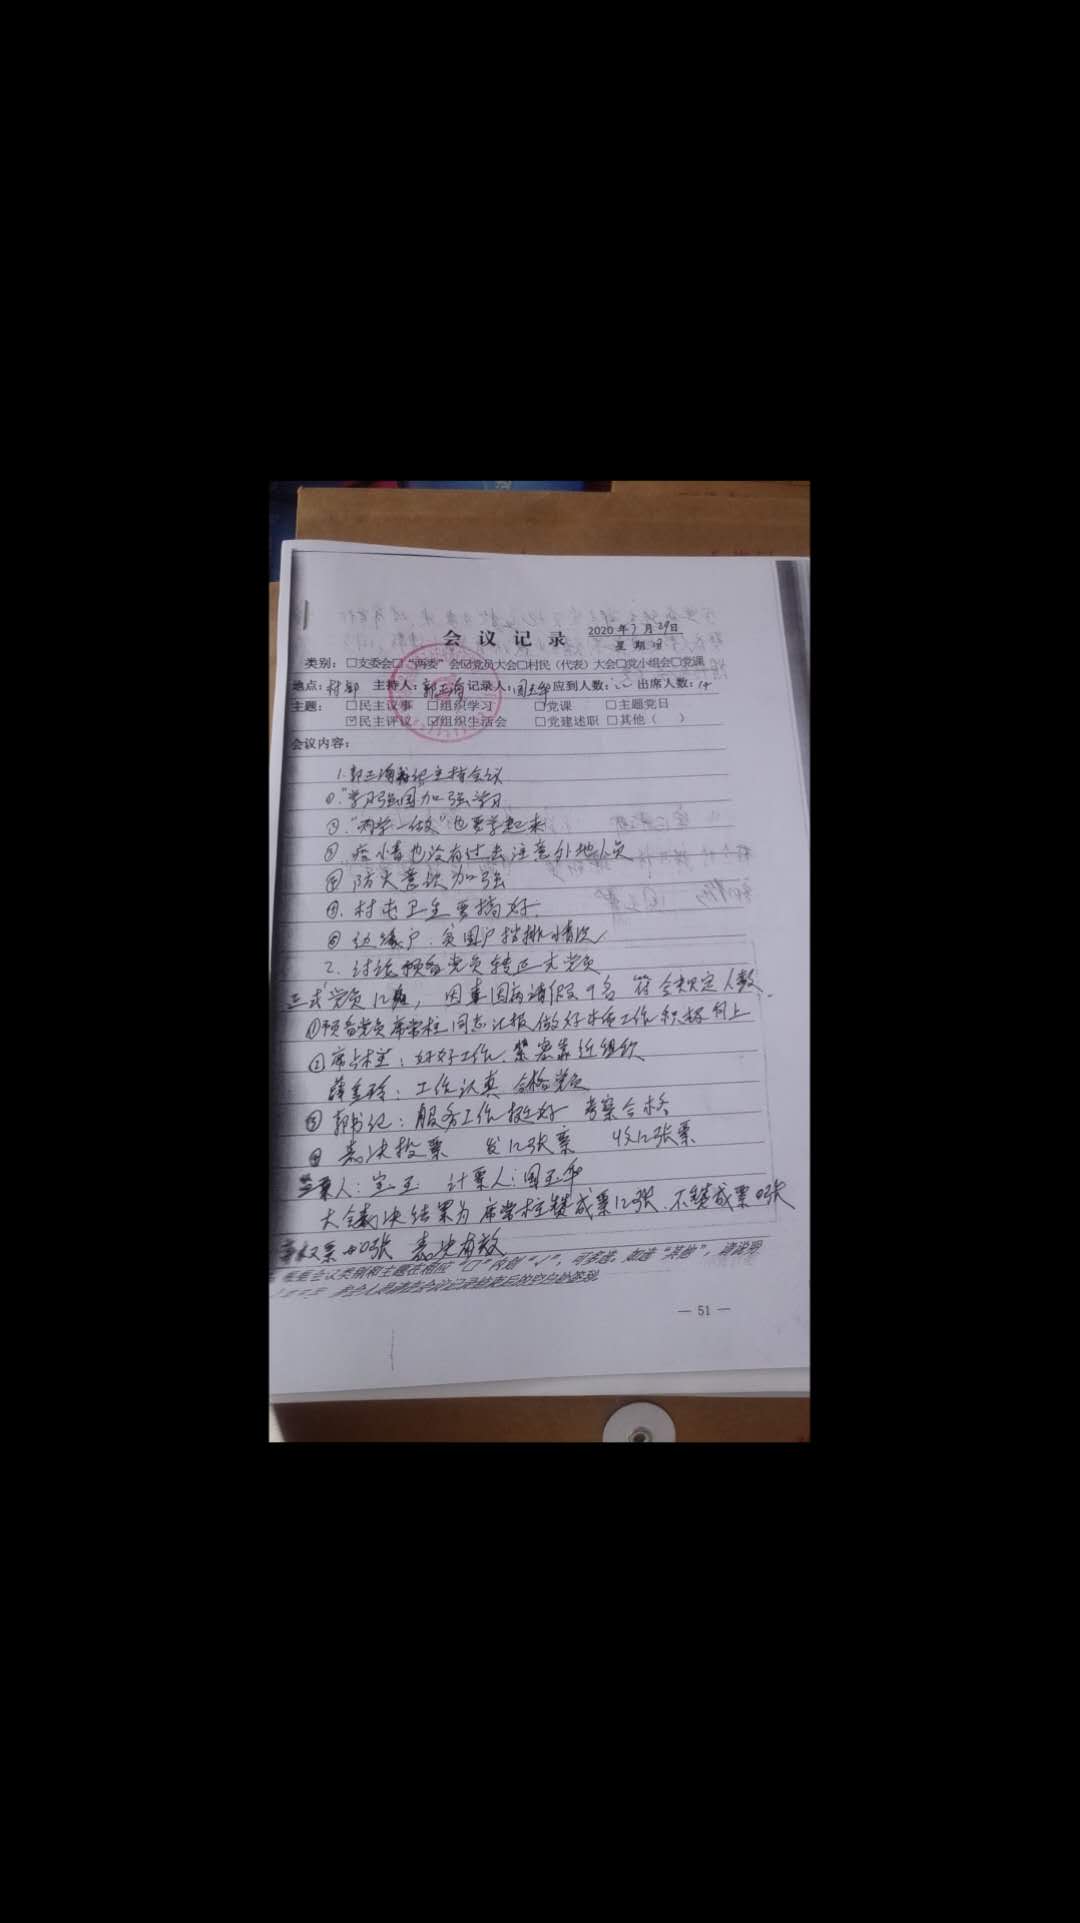 会议记录 2020年7月29日
星期
类别：□支委会□“两委”会☑党员大会□村民（代表）大会□党小组会□党课
地点：村部 主持人：郭正海 记录人：闫玉华 应到人数： 出席人数：
主题： □民主议事 □组织学习 □党课 □主题党日
☑民主评议 ☑组织生活会 □党建述职 □其他（ ）
会议内容：
1.郭正海书记主持会议
①.“学习强国”加强学习
②.“两学一做”也要学起来
③.疫情也没有过去注意外地人员
④防火意识加强
⑤.村屯卫生要搞好.
⑥边缘户.贫困户摸排情况
2.讨论预备党员转正式党员
正式党员12名，因事因病请假9名 符合规定人数.
①预备党员席常柱同志汇报做好本质工作积极向上
②席占柱：好好工作.紧密靠近组织
薛金玲：工作认真 合格党员
③郭书记：服务工作挺好 考察合格
④表决投票 发12张票 收12张票
监票人：宝玉 计票人：闫玉华
大会表决结果为席常柱赞成票12张.不赞成票0张
弃权票0张 表决有效
根据会议类别和主题在相应“□”内划“√”，可多选，如选“其他”，请说明
参会人员请在会议记录结束后的空白处签到
— 51 —